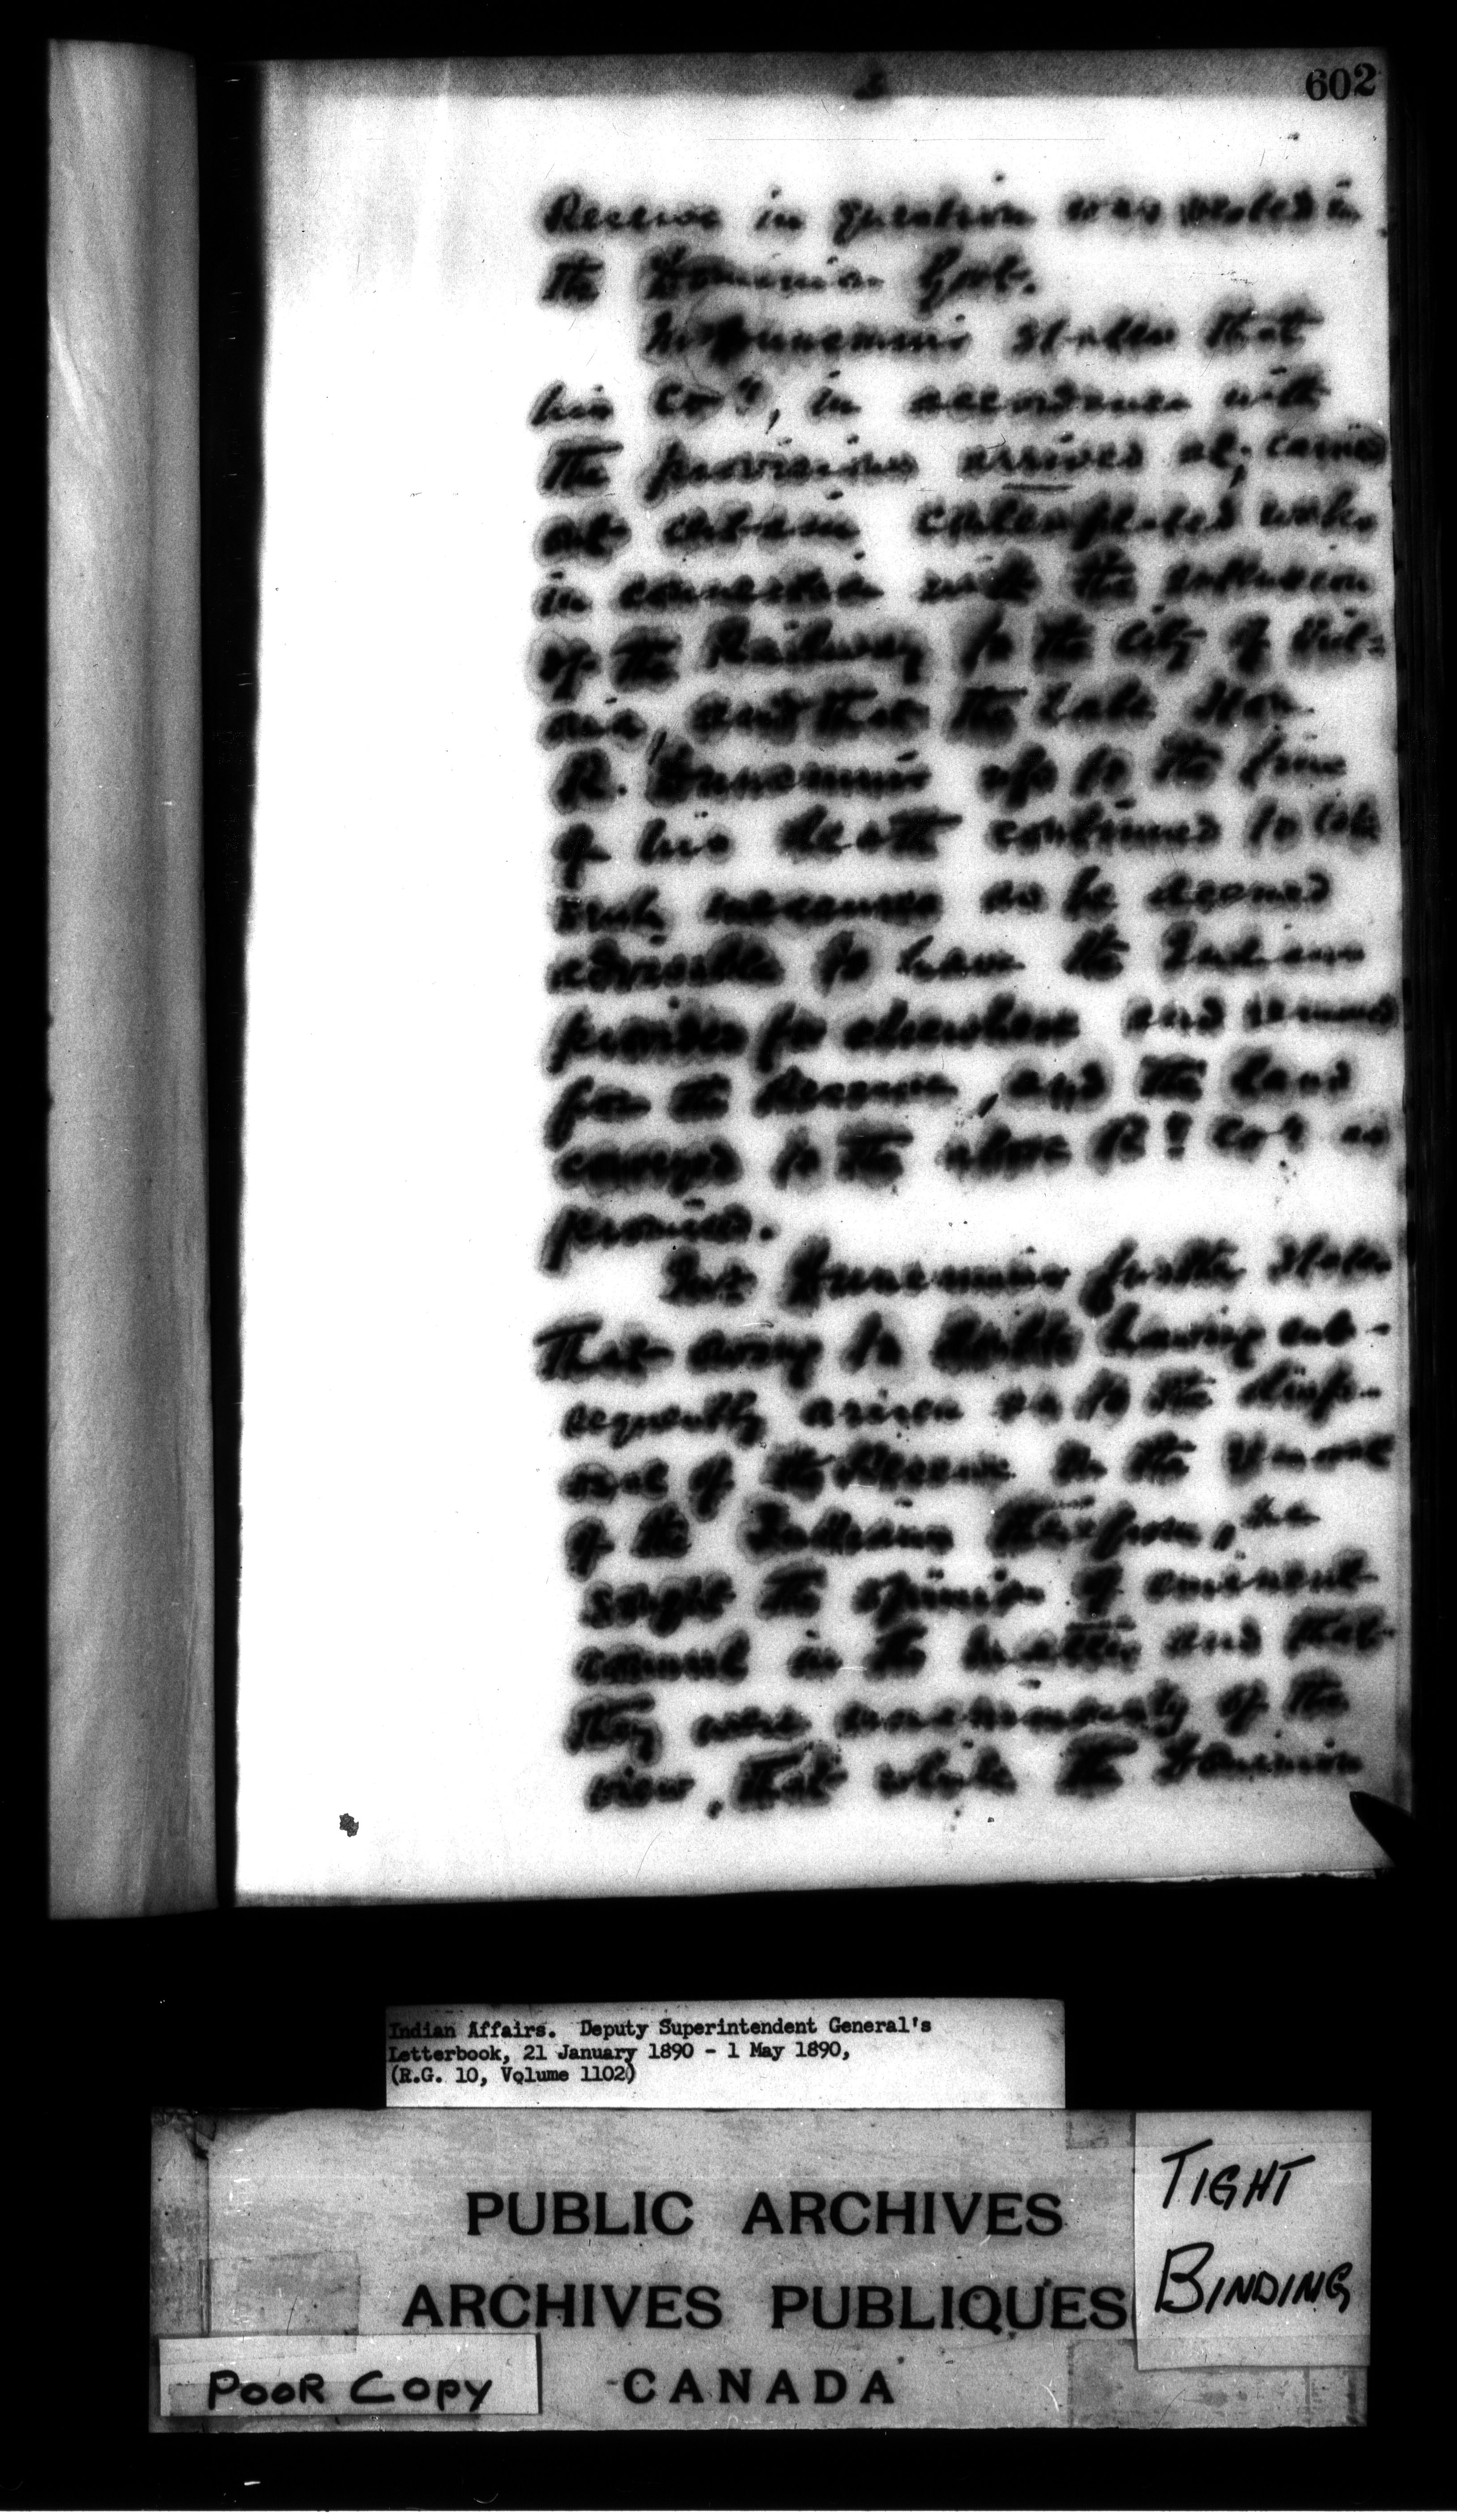 602
2
Reserve in question was vested in
the Dominion Govt.
Mr Dunsmuir states that
his Coy, in accordance with
the provisions arrived at, carried
out certain contemplated works
in connection with the extension
of the Railway to the City of Vict-
oria, and that the late Hon.
R. Dunsmuir up to the time
of his death continued to take
such measures as he deemed
advisable to have the Indians
provided for elsewhere and removed
from the Reserve, and the land
conveyed to the above Ry Coy as
promised.
Mr Dunsmuir further states
that owing to doubts having sub-
sequently arisen as to the disp-
osal of the Reserve on the removal
of the Indians therefrom, he
sought the opinion of eminent
counsel in the matter and that
they were unanimously of the
view, that while the Dominion
Indian Affairs. Deputy Superintendent General's
Letterbook, 21 January 1890 - 1 May 1890,
(R.G. 10, Volume 1102)
PUBLIC ARCHIVES
ARCHIVES PUBLIQUES
CANADA
TIGHT
BINDING
POOR COPY